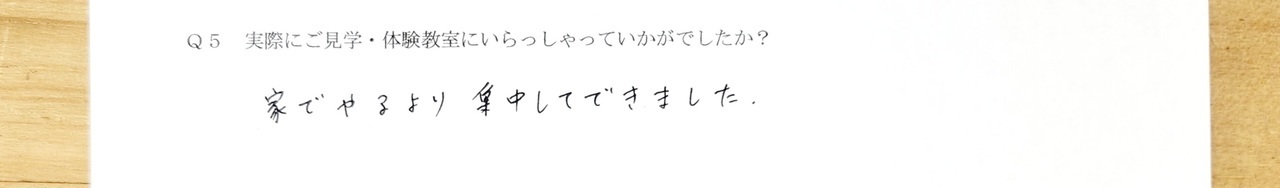 Q5 実際にご見学・体験教室にいらっしゃっていかがでしたか？
家でやるより集中してできました.